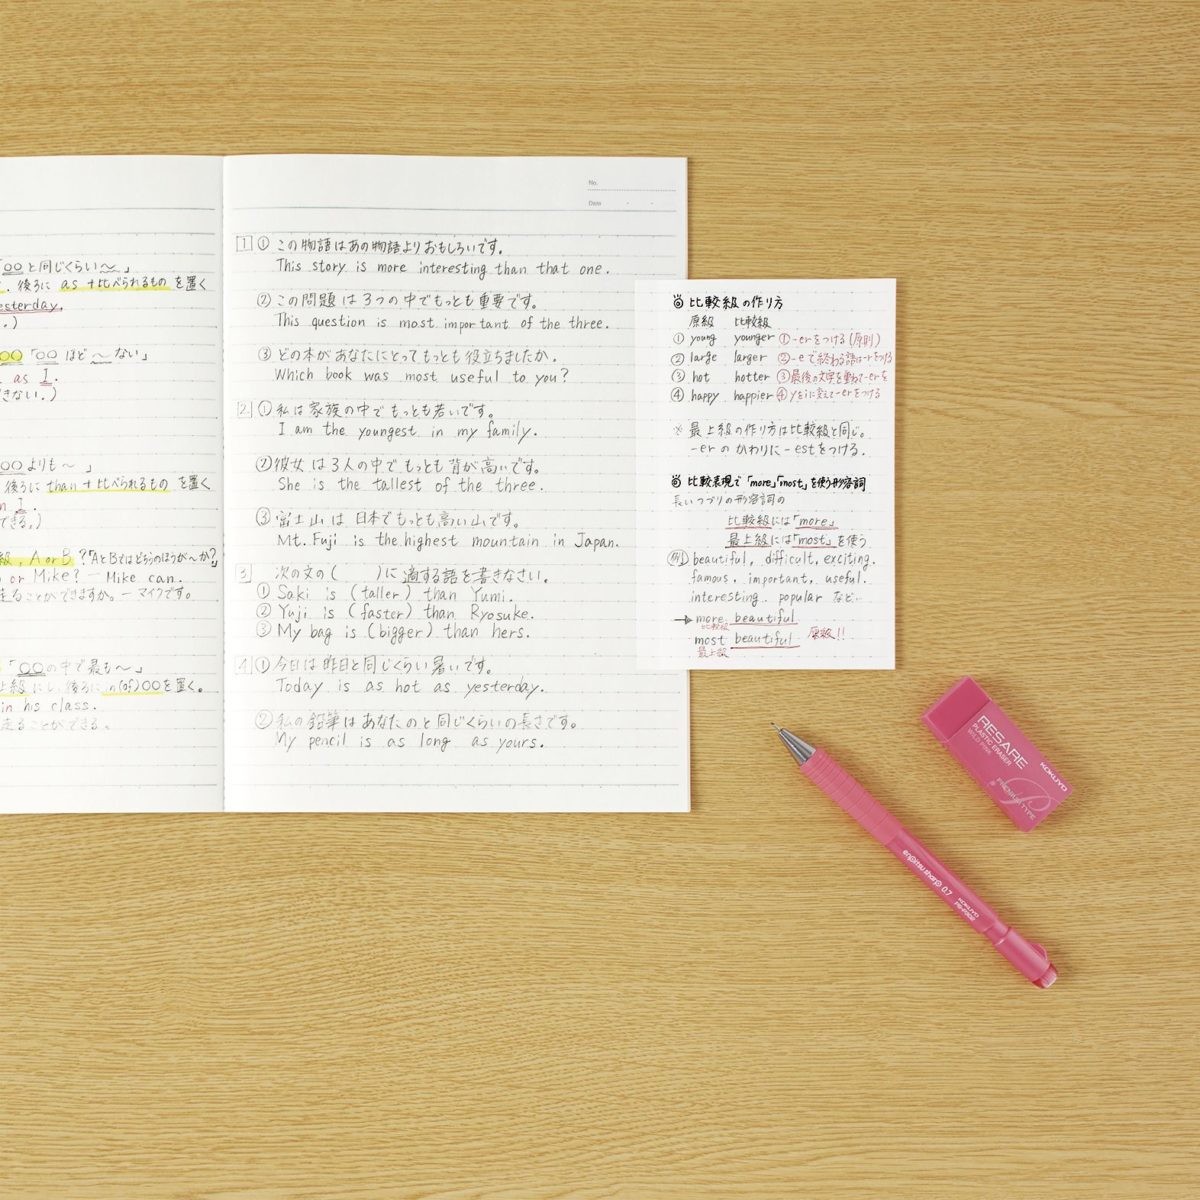 「〇〇と同じくらい〜」
後ろに as+比べられるもの を置く
yesterday.
〇〇 「〇〇 ほど〜ない」
as I.
きない。)
〇〇よりも〜 」
後ろに than+比べられるもの を置く
I.
できる。)
級, A or B ?「AとBではどちらのほうが〜か?」
or Mike? — Mike can.
走ることができますか。— マイクです。
「〇〇の中で最も〜」
上級にし、後ろに in(of)〇〇を置く。
in his class.
走ることができる。
No.
Date
1 ① この物語はあの物語よりおもしろいです。
This story is more interesting than that one.
② この問題は3つの中でもっとも重要です。
This question is most important of the three.
③ どの本があなたにとってもっとも役立ちましたか。
Which book was most useful to you?
2 ① 私は家族の中でもっとも若いです。
I am the youngest in my family.
② 彼女は3人の中でもっとも背が高いです。
She is the tallest of the three.
③ 富士山は日本でもっとも高い山です。
Mt. Fuji is the highest mountain in Japan.
3 次の文の( )に適する語を書きなさい。
① Saki is (taller) than Yumi.
② Yuji is (faster) than Ryosuke.
③ My bag is (bigger) than hers.
4 ① 今日は昨日と同じくらい暑いです。
Today is as hot as yesterday.
② 私の鉛筆はあなたのと同じくらいの長さです。
My pencil is as long as yours.
◎ 比較級の作り方
原級 比較級
① young younger ①-erをつける(原則)
② large larger ②-eで終わる語は-rをつける
③ hot hotter ③最後の文字を重ねて-erを
④ happy happier ④yをiに変えて-erをつける
※ 最上級の作り方は比較級と同じ。
-erのかわりに-estをつける.
◎ 比較表現で「more」「most」を使う形容詞
長いつづりの形容詞の
比較級には「more」
最上級には「most」を使う
例) beautiful, difficult, exciting.
famous, important, useful.
interesting. popular など…
→ more beautiful
比較級
most beautiful 原級!!
最上級
RESARE
PLASTIC ERASER
WILD PINK
KOKUYO
PREMIUM TYPE
enpitsu sharp 0.7
KOKUYO